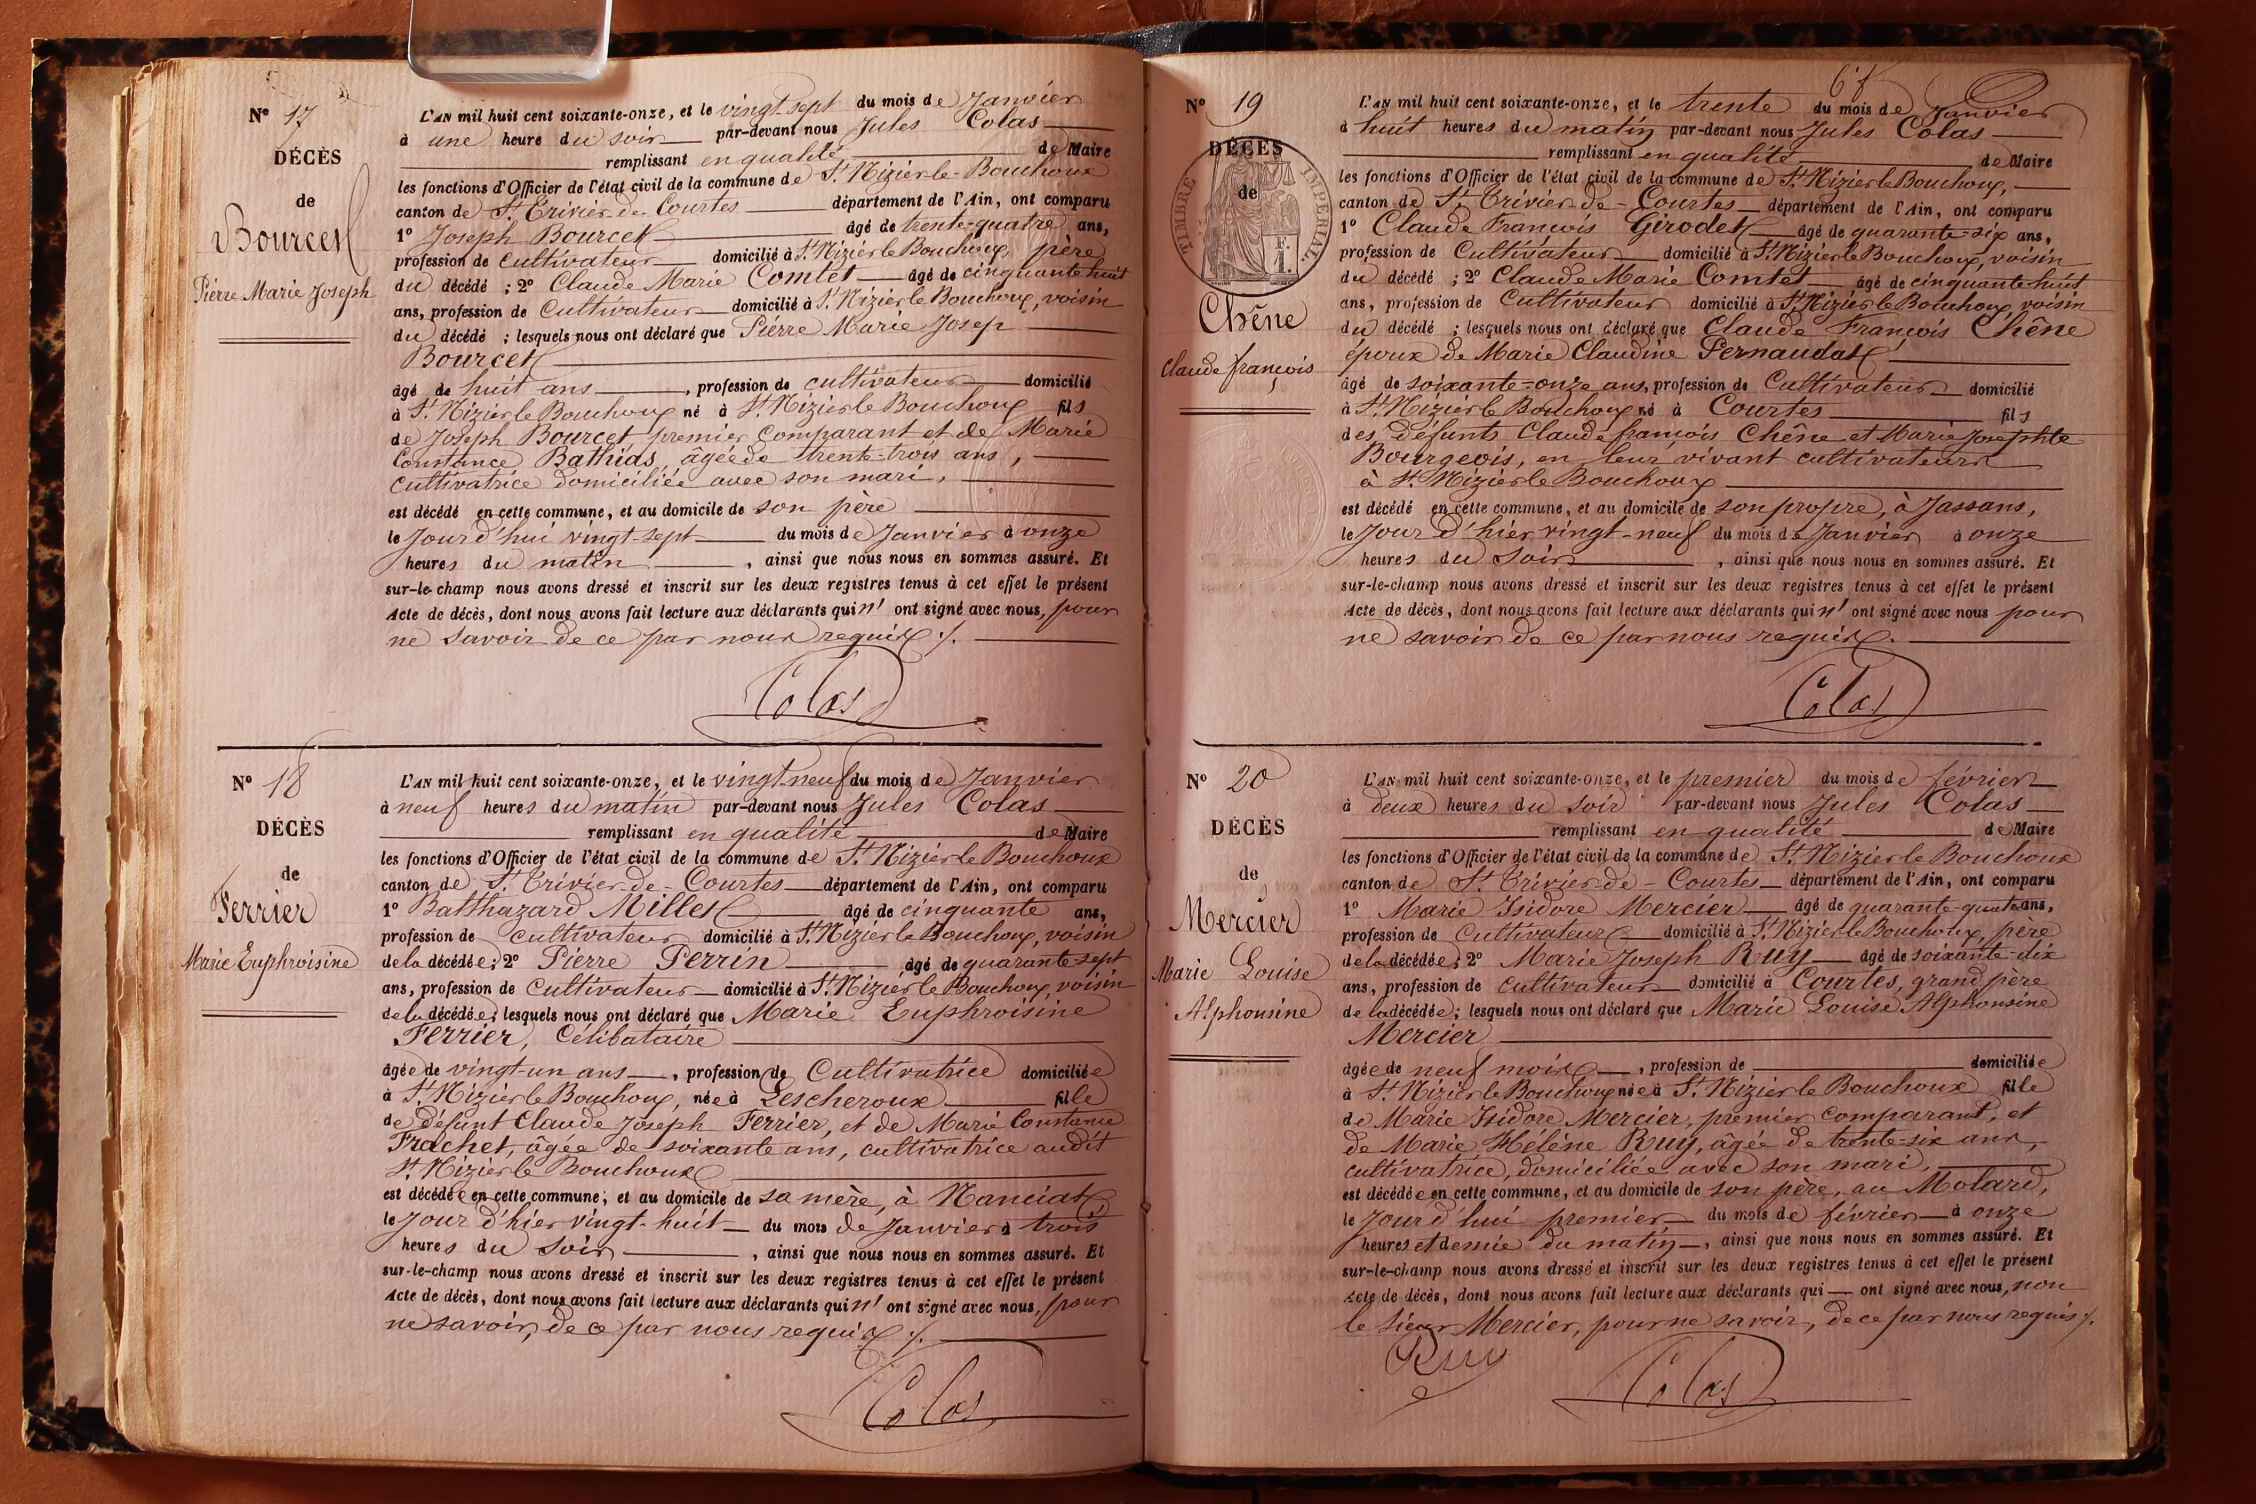 Nº 17
DÉCÈS
de
Bourcet
Pierre Marie Joseph
L'AN mil huit cent soixante-onze, et le vingt-sept du mois de Janvier
à une heure du soir par-devant nous Jules Colas
remplissant en qualité de Maire
les fonctions d'Officier de l'état civil de la commune de St Nizier le Bouchoux
canton de St Trivier de Courtes département de l'Ain, ont comparu
1º Joseph Bourcet âgé de trente-quatre ans,
profession de cultivateur domicilié à St Nizier le Bouchoux, père
du décédé ; 2º Claude Marie Comtet âgé de cinquante huit
ans, profession de Cultivateur domicilié à St Nizier le Bouchoux, voisin
du décédé ; lesquels nous ont déclaré que Pierre Marie Josep
Bourcet
âgé de huit ans, profession de cultivateur domicilié
à St Nizier le Bouchoux né à St Nizier le Bouchoux fils
de Joseph Bourcet premier comparant et de Marie
Constance Bathias, âgée de trente-trois ans,
cultivatrice domiciliée avec son mari,
est décédé en cette commune, et au domicile de son père
le Jour d'hui vingt-sept du mois de Janvier à onze
heures du matin, ainsi que nous nous en sommes assuré. Et
sur-le-champ nous avons dressé et inscrit sur les deux registres tenus à cet effet le présent
Acte de décès, dont nous avons fait lecture aux déclarants qui n' ont signé avec nous, pour
ne savoir de ce par nous requis ./.
Colas
Nº 18
DÉCÈS
de
Ferrier
Marie Euphroisine
L'AN mil huit cent soixante-onze, et le vingt-neuf du mois de Janvier
à neuf heures du matin par-devant nous Jules Colas
remplissant en qualité de Maire
les fonctions d'Officier de l'état civil de la commune de St Nizier le Bouchoux
canton de St Trivier-de-Courtes département de l'Ain, ont comparu
1º Balthazard Millet âgé de cinquante ans,
profession de cultivateur domicilié à St Nizier le Bouchoux, voisin
de la décédée; 2º Pierre Perrin âgé de quarante sept
ans, profession de Cultivateur domicilié à St Nizier le Bouchoux, voisin
de la décédée; lesquels nous ont déclaré que Marie Euphroisine
Ferrier, Célibataire
âgée de vingt-un ans, profession de Cultivatrice domiciliée
à St Nizier le Bouchoux, née à Lescheroux fille
de défunt Claude Joseph Ferrier, et de Marie Constance
Frachet, âgée de soixante ans, cultivatrice audit
St Nizier le Bouchoux
est décédée en cette commune, et au domicile de sa mère, à Nanciat
le Jour d'hier vingt-huit du mois de Janvier à trois
heures du soir, ainsi que nous nous en sommes assuré. Et
sur-le-champ nous avons dressé et inscrit sur les deux registres tenus à cet effet le présent
Acte de décès, dont nous avons fait lecture aux déclarants qui n' ont signé avec nous, pour
ne savoir, de ce par nous requis ./.
Colas
Nº 19
DÉCÈS
de
TIMBRE IMPÉRIAL
F.
1.
Chêne
Claude françois
L'AN mil huit cent soixante-onze, et le trente du mois de Janvier
à huit heures du matin par-devant nous Jules Colas
remplissant en qualité de Maire
les fonctions d'Officier de l'état civil de la commune de St Nizier le Bouchoux,
canton de St Trivier-de-Courtes département de l'Ain, ont comparu
1º Claude François Girodet âgé de quarante-six ans,
profession de Cultivateur domicilié à St Nizier le Bouchoux, voisin
du décédé ; 2º Claude Marie Comtet âgé de cinquante huit
ans, profession de Cultivateur domicilié à St Nizier le Bouchoux, voisin
du décédé ; lesquels nous ont déclaré que Claude François Chêne
époux de Marie Claudine Pernaudat
âgé de soixante-onze ans, profession de Cultivateur domicilié
à St Nizier le Bouchoux né à Courtes fils
des défunts Claude françois Chêne et Marie Josephte
Bourgeois, en leur vivant cultivateurs
à St Nizier le Bouchoux
est décédé en cette commune, et au domicile de son propre, à Jassans,
le Jour d'hier vingt-neuf du mois de Janvier à onze
heures du soir, ainsi que nous nous en sommes assuré. Et
sur-le-champ nous avons dressé et inscrit sur les deux registres tenus à cet effet le présent
Acte de décès, dont nous avons fait lecture aux déclarants qui n' ont signé avec nous pour
ne savoir de ce par nous requis.
Colas
Nº 20
DÉCÈS
de
Mercier
Marie Louise
Alphonsine
L'AN mil huit cent soixante-onze, et le premier du mois de février
à deux heures du soir par-devant nous Jules Colas
remplissant en qualité de Maire
les fonctions d'Officier de l'état civil de la commune de St Nizier le Bouchoux
canton de St Trivier-de-Courtes département de l'Ain, ont comparu
1º Marie Isidore Mercier âgé de quarante-quatre ans,
profession de Cultivateur domicilié à St Nizier le Bouchoux, père
de la décédée; 2º Marie Joseph Ruy âgé de soixante-dix
ans, profession de cultivateur domicilié à Courtes, grand père
de la décédée; lesquels nous ont déclaré que Marie Louise Alphonsine
Mercier
âgée de neuf mois, profession de domiciliée
à St Nizier le Bouchoux née à St Nizier le Bouchoux fille
de Marie Isidore Mercier, premier comparant, et
de Marie Hélène Ruy, âgée de trente-six ans,
cultivatrice, domiciliée avec son mari,
est décédée en cette commune, et au domicile de son père, au Molard,
le Jour d'hui premier du mois de février à onze
heures et demie du matin, ainsi que nous nous en sommes assuré. Et
sur-le-champ nous avons dressé et inscrit sur les deux registres tenus à cet effet le présent
Acte de décès, dont nous avons fait lecture aux déclarants qui ont signé avec nous, non
le sieur Mercier, pour ne savoir, de ce par nous requis ./.
Ruy
Colas